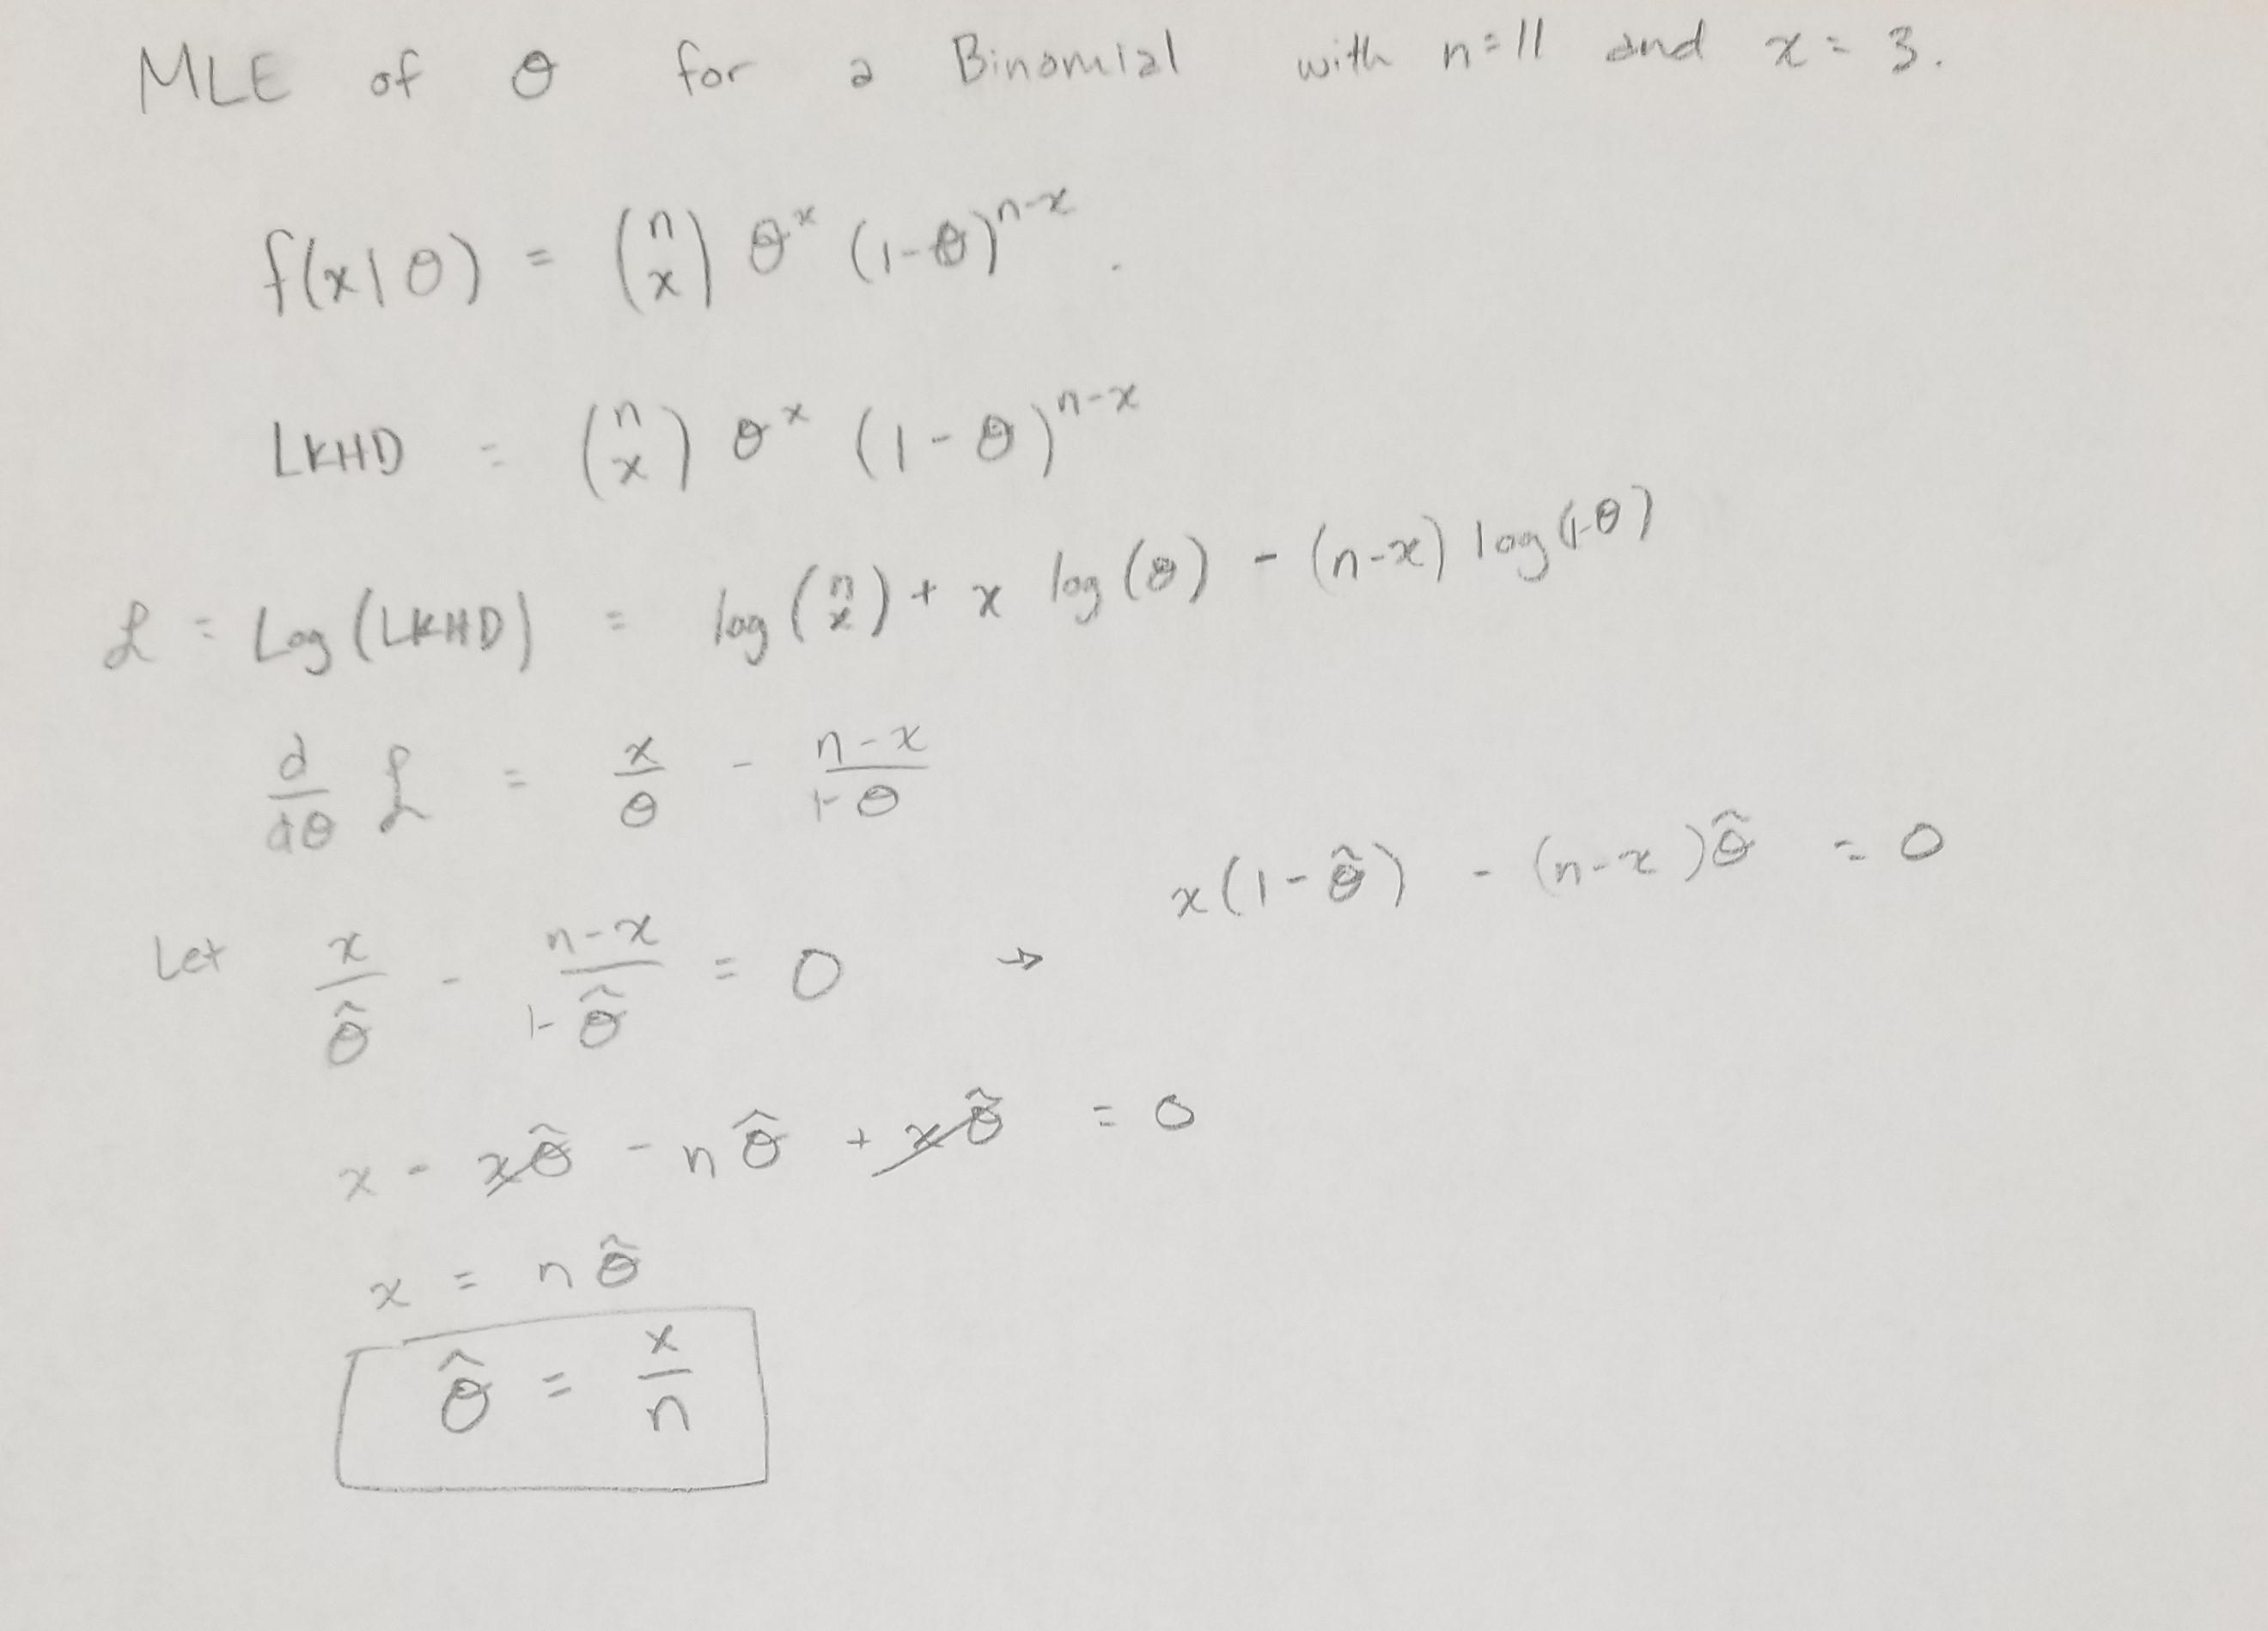 MLE of θ for a Binomial with n=11 and x = 3.
f(x|θ) = (n x) θ^x (1-θ)^{n-x}.
LKHD = (n x) θ^x (1-θ)^{n-x}
ℒ = Log(LKHD) = log(n x) + x log(θ) - (n-x) log(1-θ)
d/dθ ℒ = x/θ - (n-x)/(1-θ)
Let x/θ̂ - (n-x)/(1-θ̂) = 0 → x(1-θ̂) - (n-x)θ̂ = 0
x - xθ̂ - nθ̂ + xθ̂ = 0
x = nθ̂
θ̂ = x/n